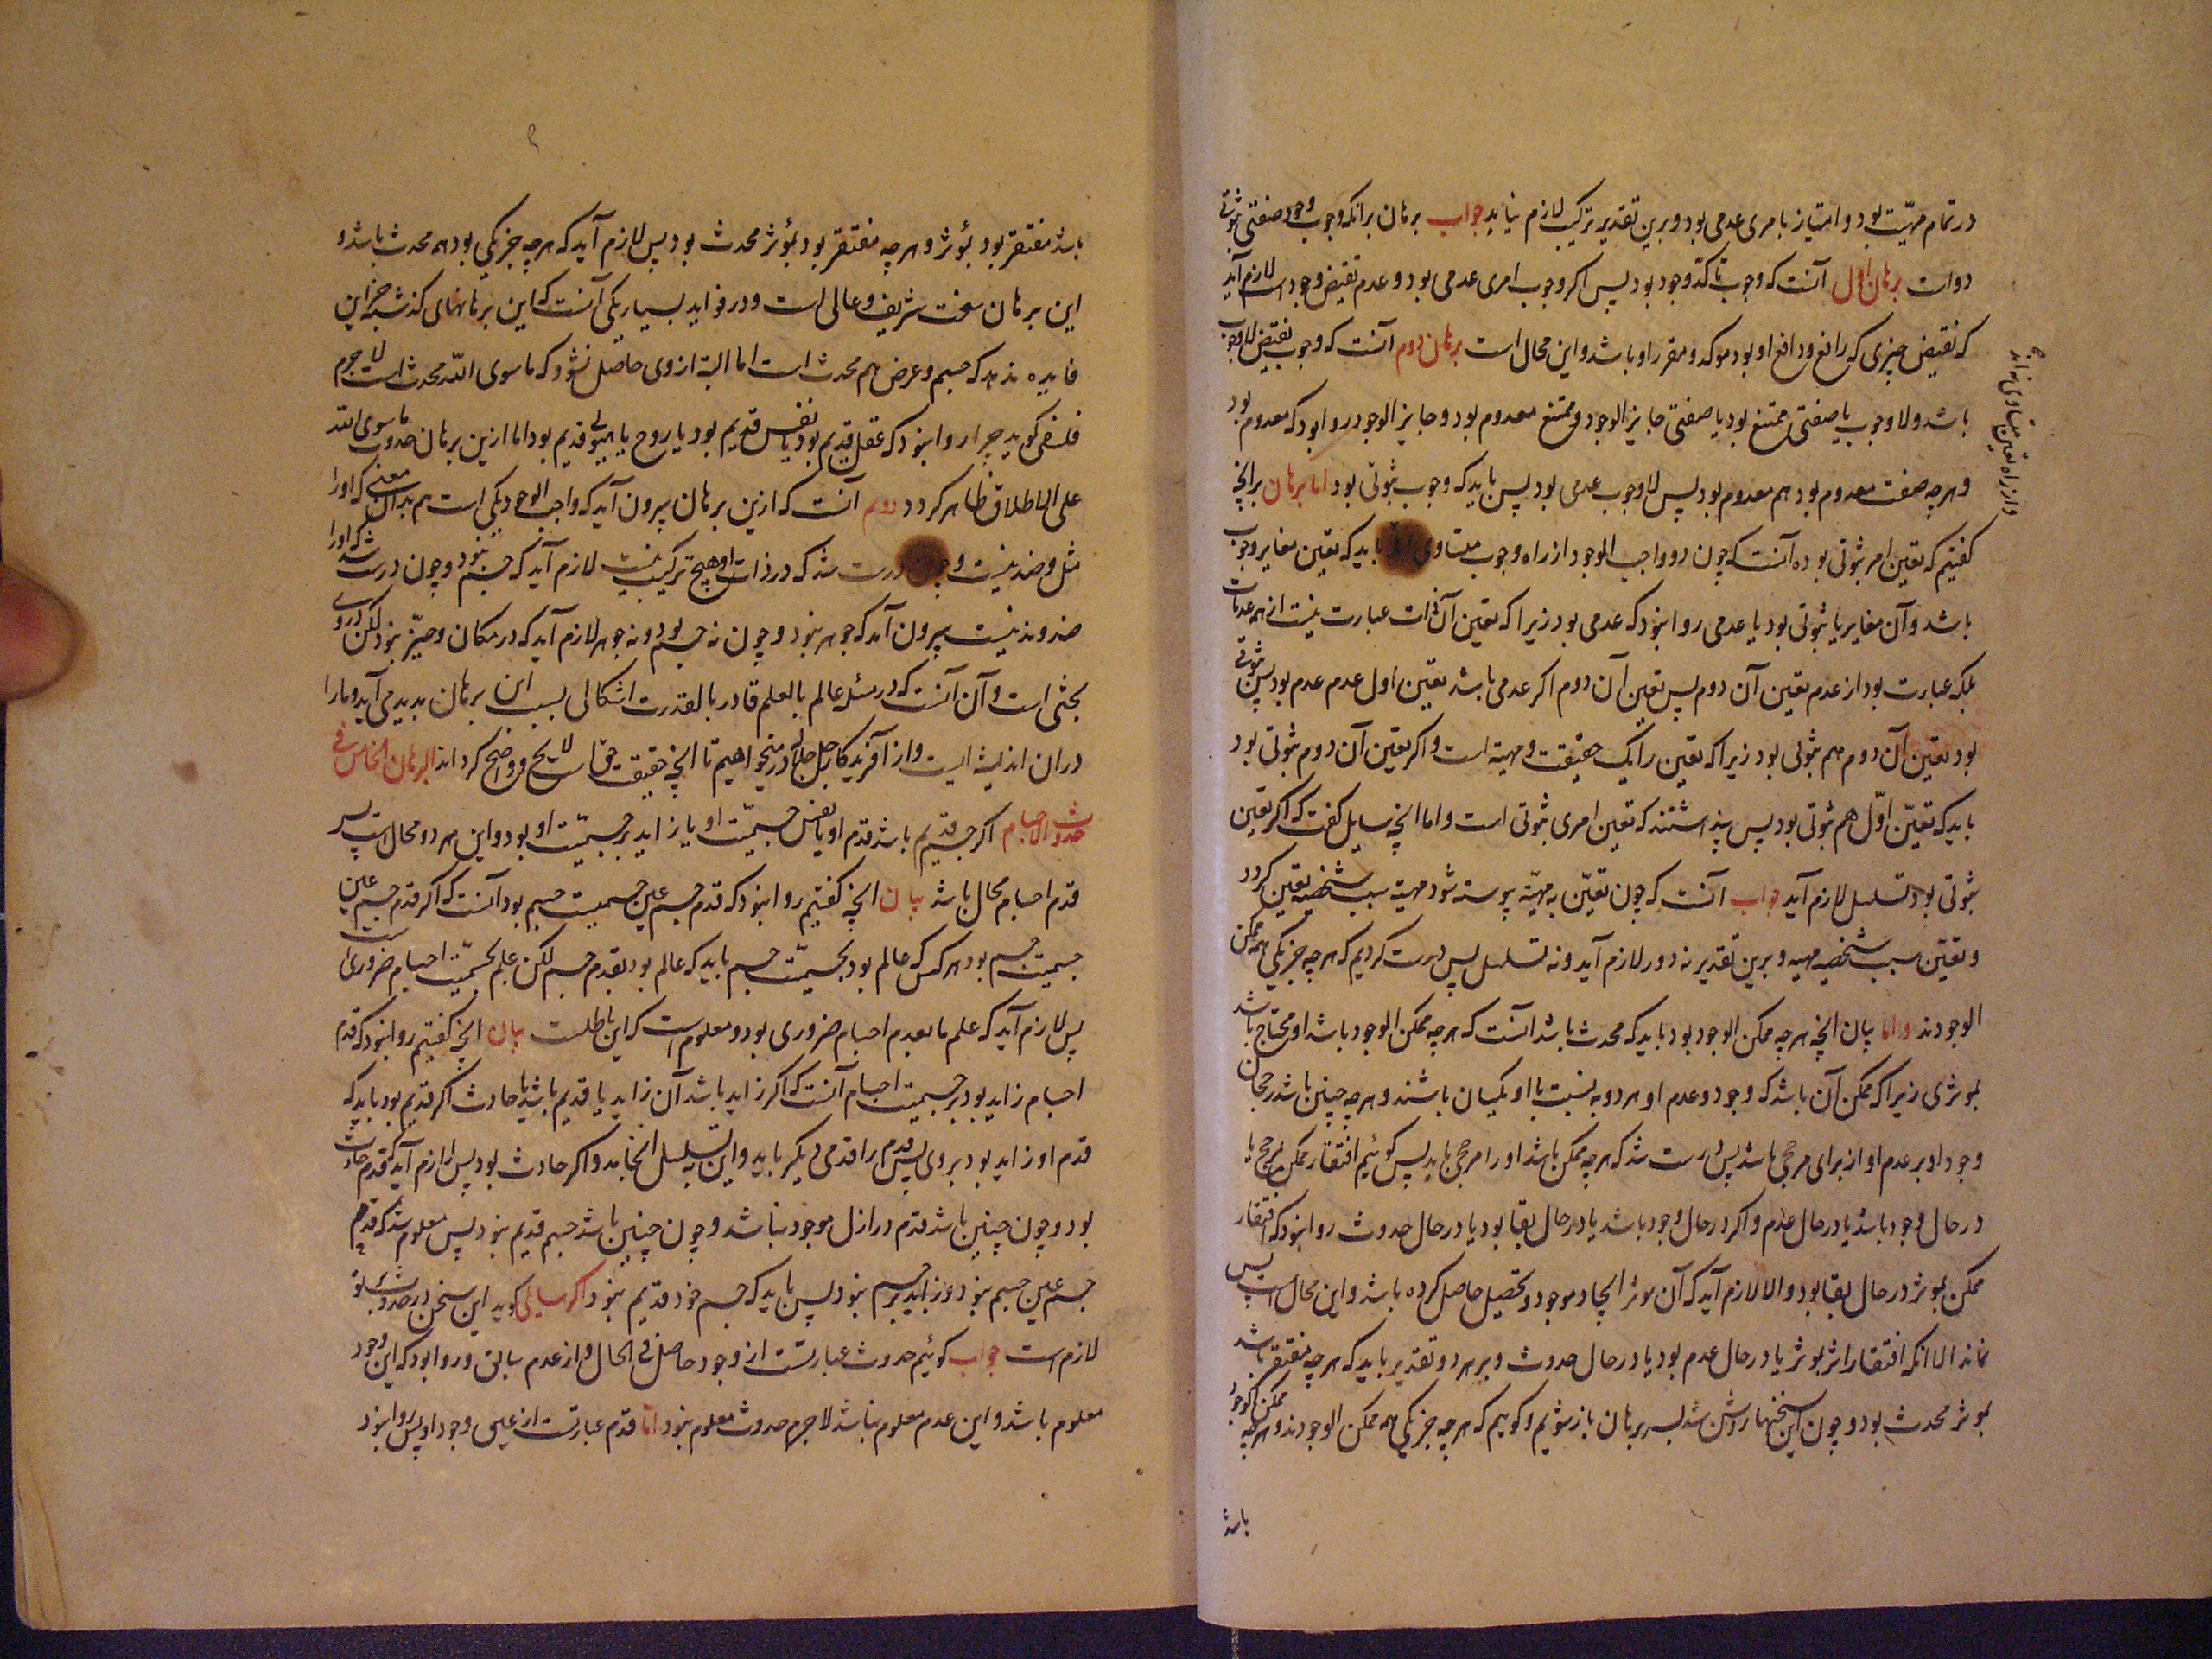 در تمام مهیّت بود و امتیاز بامری عدمی بود و برین تقدیر ترکیب لازم نیاید جواب برهان برانکه وجوب وجود صفتی ثبوتی
دو است برهان اول آنست که وجوب تاکّد وجود بود پس اکر وجوب امری عدمی بود و عدم نقیض وجود است لازم آید
که نقیض چیزی که رافع و دافع او بود موکد و مقرر او باشد و این محال است برهان دوم آنست که وجوب نقیض لاوجوب
باشد و لا وجوب یا صفتی ممتنع بود یا صفتی جایز الوجود و ممتنع معدوم بود و جایز الوجود روا بود که معدوم بود
و هرچه صفت معدوم بود هم معدوم بود پس لا وجوب عدمی بود پس باید که وجوب ثبوتی بود اما برهان برانچه
کفتیم که تعین امر ثبوتی بود آنست که چون دو واجب الوجود از راه وجوب متساوی باید که تعین مغایر وجوب
باشد و آن مغایر یا ثبوتی بود یا عدمی روا نبود که عدمی بود زیرا که تعین آن ذات عبارت نیست از هر عدمات
بلکه عبارت بود از عدم تعین آن دوم پس تعین آن دوم اکر عدمی باشد تعین اول عدم عدم بود پس ثبوتی
بود تعین آن دوم هم ثبوتی بود زیرا که تعین را یک حقیقت و مهیة است و اکر تعین آن دوم ثبوتی بود
باید که تعیّن اوّل هم ثبوتی بود پس پنداشتند که تعین امری ثبوتی است و اما انچه سایل کفت که اکر تعین
ثبوتی بود تسلسل لازم آید جواب آنست که چون تعیّن به مهیّة پیوسته شود مهیة سبب شخصیه تعین کردد
و تعیّن سبب شخصیه مهیه و برین تقدیر نه دور لازم آید و نه تسلسل پس درست کردیم که هرچه جز یکی همه ممکن
الوجودند و اما بیان انچه هرچه ممکن الوجود بود باید که محدث باشد آنست که هرچه ممکن الوجود باشد او محتاج باشد
بموثری زیرا که ممکن آن باشد که وجود و عدم او هر دو به نسبت با او یکسان باشند و هرچه چنین باشد رجحان
وجود او بر عدم او از برای مرجحی باشد پس درست شد که هرچه ممکن باشد او را مرجحی باید پس کوئیم افتقار ممکن بمرجح یا
در حال وجود باشد یا در حال عدم و اکر در حال وجود باشد یا در حال بقا بود یا در حال حدوث روا نبود که افتقار
ممکن بموثر در حال بقا بود و الا لازم آید که آن موثر ایجاد موجود و تحصیل حاصل کرده باشد و این محال است پس
نماند الا انکه افتقار اثر بموثر یا در حال عدم بود یا در حال حدوث و بر هر دو تقدیر باید که هرچه مفتقر باشد
بموثر محدث بود و چون این سخنها روشن شد بسر برهان باز شویم و کوییم که هرچه جز یکی همه ممکن الوجودند و هرچه ممکن الوجود
باشد
باشد مفتقر بود بمؤثر و هرچه مفتقر بود بمؤثر محدث بود پس لازم آید که هرچه جز یکی بود همه محدث باشد و
این برهان سخت شریف و عالی است و در فواید بسیار یکی آنست که این برهانهای کذشته جز این
فایده ندهد که جسم و عرض هم محدث است اما البته از وی حاصل نشود که ماسوی الله محدث است لا جرم
فلسفی کوید چرا روا نبود که عقل قدیم بود یا نفس قدیم بود یا روح یا هیولی قدیم بود اما ازین برهان حدوث ماسوی الله
علی الاطلاق ظاهر کردد دوم آنست که ازین برهان بیرون آید که واجب الوجود یکی است هم بدان معنی که او را
مثل و ضد نیست و درست شد که در ذات او هیچ ترکیب نیست لازم آید که جسم نبود و چون درست شد که او را
ضد و ند نیست بیرون آمد که جوهر نبود و چون نه جسم بود و نه جوهر لازم آید که در مکان و حیّز نبود لکن در وی
بحثی است و آن آنست که در مسئله عالم بالعلم قادر بالقدرت اشکالی بسبب این برهان پدید می آید و ما را
دران اندیشه ایست و از آفریدکار جل جلاله در میخواهیم تا انچه حقیقت حق است لایح و واضح کرداند البرهان الخامس فی
حدوث الاجسام اکر جسم قدیم باشد قدم او یا نفس جسمیّت او یا زاید بر جسمیّت او بود و این هر دو محال است پس
قدم اجسام محال باشد بیان انچه کفتیم روا نبود که قدم جسم عین جسمیت جسم بود آنست که اکر قدم جسم عین
جسمیت جسم بود هر کس که عالم بود بجسمیّت جسم باید که عالم بود بقدم جسم لکن علم بجسمیّت اجسام ضروری است
پس لازم آید که علم ما بقدم اجسام ضروری بود و معلوم است که این باطلست بیان انچه کفتیم روا نبود که قدم
اجسام زاید بود بر جسمیت اجسام آنست که اکر زاید باشد آن زاید یا قدیم باشد یا حادث اکر قدیم بود باید که
قدم او زاید بود بر وی پس قدم را قدمی دیکر باید و این به تسلسل انجامد و اکر حادث بود پس لازم آید که قدم حادث
بود و چون چنین باشد قدم در ازل موجود نباشد و چون چنین باشد جسم قدیم نبود پس معلوم شد که قدم
جسم عین جسم نبود و زاید بر جسم نبود پس باید که جسم خود قدیم نبود اکر سایلی کوید این سخن در حدوث بر تو
لازم است جواب کوئیم حدوث عبارتست از وجود حاصل فی الحال و از عدم سابق و روا بود که این وجود
معلوم باشد و این عدم معلوم نباشد لا جرم حدوث معلوم نبود اما قدم عبارتست از عین وجود او پس روا نبود